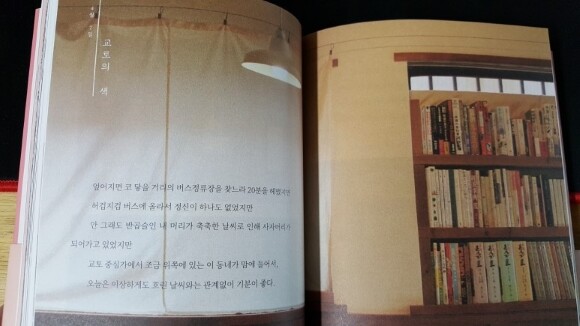 교토의 색
엎어지면 코 닿을 거리의 버스정류장을 찾느라 20분을 헤맸지만
허겁지겁 버스에 올라서 정신이 하나도 없었지만
안 그래도 반곱슬인 내 머리가 축축한 날씨로 인해 사자머리가
되어가고 있었지만
교토 중심가에서 조금 위쪽에 있는 이 동네가 맘에 들어서,
오늘은 이상하게도 흐린 날씨와는 관계없이 기분이 좋다.